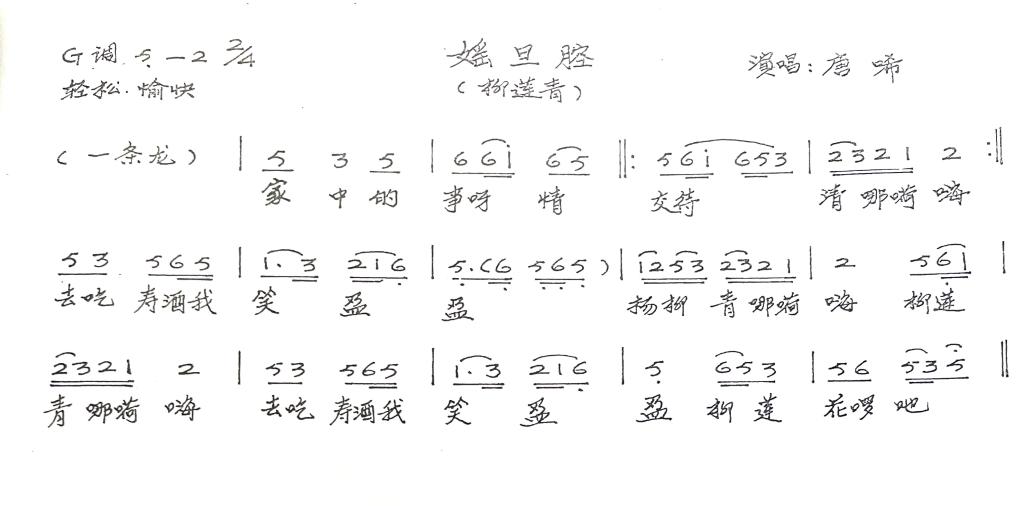 G调 5 — 2 2/4 媱旦腔 演唱：唐唏
轻松．愉快 （柳莲青）
（一条龙） | 5 3 5 | 6 6 i 6 5 ‖: 5 6 i 6 5 3 | 2 3 2 1 2 :‖
家 中 的 事呀 情 交待 清 哪嗬 嗨
5 3 5 6 5 | 1. 3 2 1 6 | 5. (6 5 6 5 ) | 1 2 5 3 2 3 2 1 | 2 5 6 i |
去吃 寿酒我 笑 盈 盈 杨柳 青 哪嗬 嗨 柳莲
2 3 2 1 2 | 5 3 5 6 5 | 1. 3 2 1 6 | 5 6 5 3 | 5 6 5 3 5 ‖
青 哪嗬 嗨 去吃 寿酒我 笑 盈 盈 柳 莲 花啰 吔